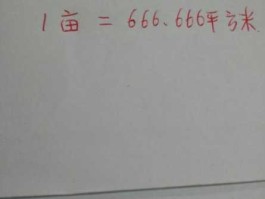 1亩 = 666.666平方米